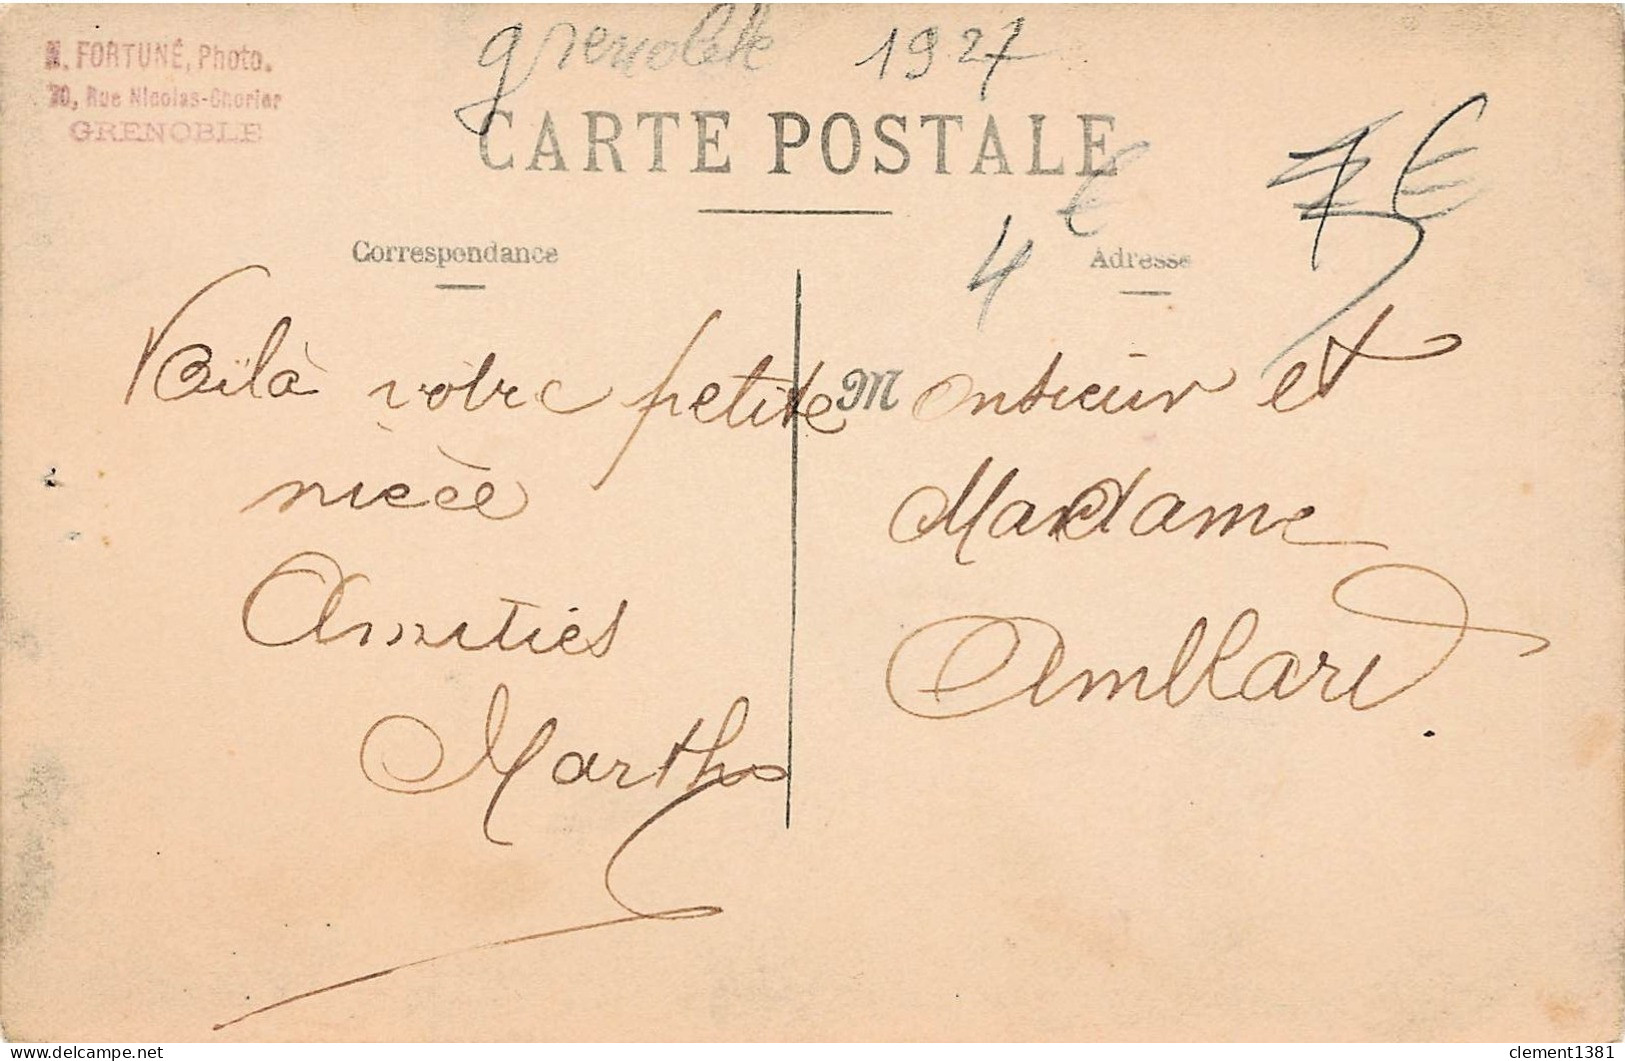 FORTUNÉ, Photo.
Rue Nicolas-Chorier
GRENOBLE
grenoble 1927
CARTE POSTALE
4 €
Correspondance
Adresse
Voilà votre petite
nièce
Amitiés
Marthe
Monsieur et
Madame
Amblard.
delcampe.net
clement1381